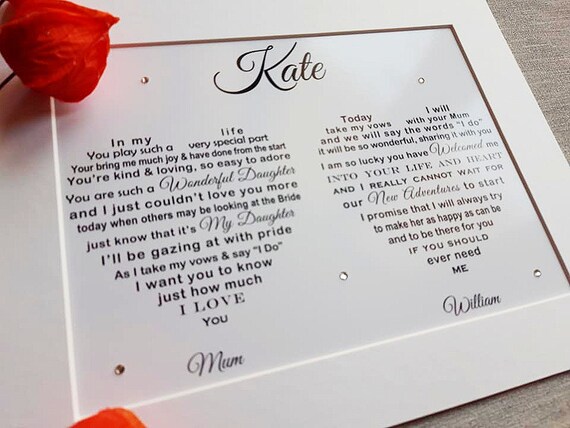 Kate
In my life
You play such a very special part
Your bring me much joy & have done from the start
You're kind & loving, so easy to adore
You are such a Wonderful Daughter
and I just couldn't love you more
today when others may be looking at the Bride
just know that it's My Daughter
I'll be gazing at with pride
As I take my vows & say "I Do"
I want you to know
just how much
I LOVE
You
Mum
Today I will
take my vows with your Mum
and we will say the words "I do"
it will be so wonderful, sharing it with you
I am so lucky you have Welcomed me
INTO YOUR LIFE AND HEART
AND I REALLY CANNOT WAIT FOR
our New Adventures to start
I promise that I will always try
to make her as happy as can be
and to be there for you
IF YOU SHOULD
ever need
ME
William